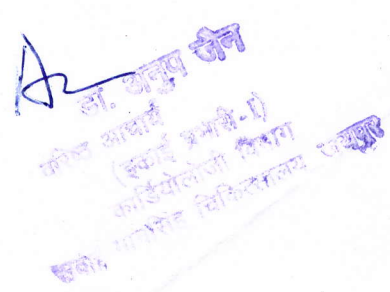 डॉ. अनुप जैन
कनिष्ठ आचार्य
(इकाई प्रभारी-I)
कार्डियोलोजी विभाग
चिकित्सालय जयपुर